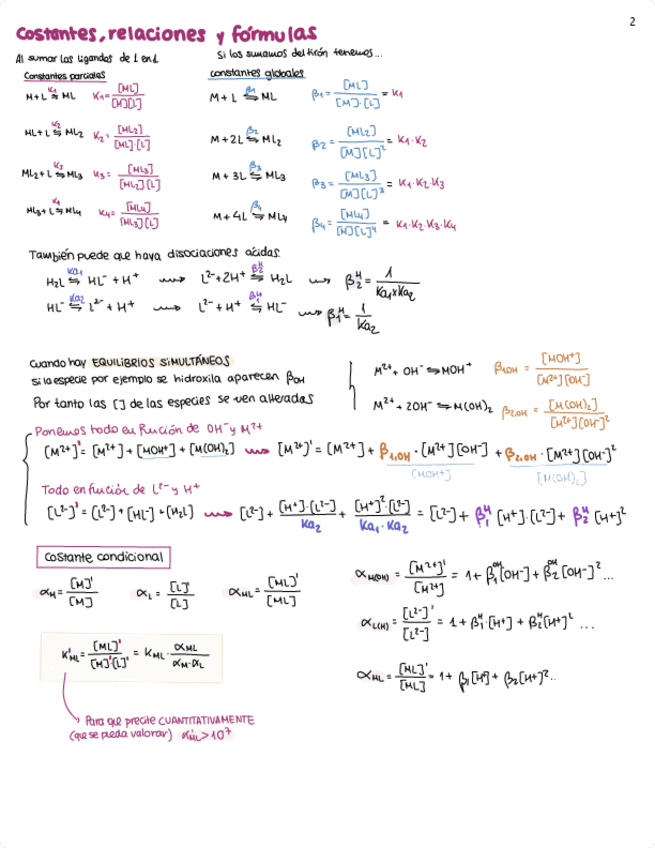 2
Costantes, relaciones y fórmulas
Al sumar los ligandos de 1 en 1
Si los sumamos del tirón tenemos...
Constantes parciales
constantes globales
M+L ⇆ ML K₁ = [ML]/[M][L]
M + L ⇆ ML β₁ = [ML]/[M]·[L] = K₁
ML+L ⇆ ML₂ K₂ = [ML₂]/[ML]·[L]
M + 2L ⇆ ML₂ β₂ = [ML₂]/[M][L]² = K₁·K₂
ML₂+L ⇆ ML₃ K₃ = [ML₃]/[ML₂][L]
M + 3L ⇆ ML₃ β₃ = [ML₃]/[M][L]³ = K₁·K₂·K₃
ML₃+L ⇆ ML₄ K₄ = [ML₄]/[ML₃][L]
M + 4L ⇆ ML₄ β₄ = [ML₄]/[M][L]⁴ = K₁·K₂·K₃·K₄
También puede que haya disociaciones ácidas
H₂L ⇆ HL⁻ + H⁺ Ka₁ ⟿ L²⁻+2H⁺ ⇆ H₂L β₂ᴴ ⟿ β₂ᴴ = 1/Ka₁×Ka₂
HL⁻ ⇆ L²⁻ + H⁺ Ka₂ ⟿ L²⁻ + H⁺ ⇆ HL⁻ β₁ᴴ ⟿ β₁ᴴ = 1/Ka₂
Cuando hay EQUILIBRIOS SIMULTÁNEOS
si la especie por ejemplo se hidroxila aparecen βOH
Por tanto las [] de las especies se ven alteradas
M²⁺ + OH⁻ ⇆ MOH⁺ β₁,OH = [MOH⁺]/[M²⁺][OH⁻]
M²⁺ + 2OH⁻ ⇆ M(OH)₂ β₂,OH = [M(OH)₂]/[M²⁺][OH⁻]²
Ponemos todo en función de OH⁻ y M²⁺
[M²⁺]' = [M²⁺] + [MOH⁺] + [M(OH)₂] ⟿ [M²⁺]' = [M²⁺] + β₁,OH · [M²⁺][OH⁻] + β₂,OH · [M²⁺][OH⁻]²
[MOH⁺] [M(OH)₂]
Todo en función de L²⁻ y H⁺
[L²⁻]' = [L²⁻] + [HL⁻] + [H₂L] ⟿ [L²⁻] + [H⁺]·[L²⁻]/Ka₂ + [H⁺]²·[L²⁻]/Ka₁·Ka₂ = [L²⁻] + β₁ᴴ [H⁺]·[L²⁻] + β₂ᴴ [H⁺]²
Costante condicional
αM = [M]'/[M] αL = [L]'/[L] αML = [ML]'/[ML]
αM(OH) = [M²⁺]'/[M²⁺] = 1 + β₁ᴼᴴ[OH⁻] + β₂ᴼᴴ[OH⁻]²...
αL(H) = [L²⁻]'/[L²⁻] = 1 + β₁ᴴ·[H⁺] + β₂ᴴ[H⁺]² ...
K'ML = [ML]'/[M]'[L]' = KML · αML/αM·αL
αML = [ML]'/[ML] = 1 + β₁[H⁺] + β₂[H⁺]²..
Para que precite CUANTITATIVAMENTE
(que se pueda valorar) K'ML>10⁷